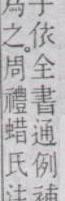 于依全書通例補
爲之。周禮蜡氏注